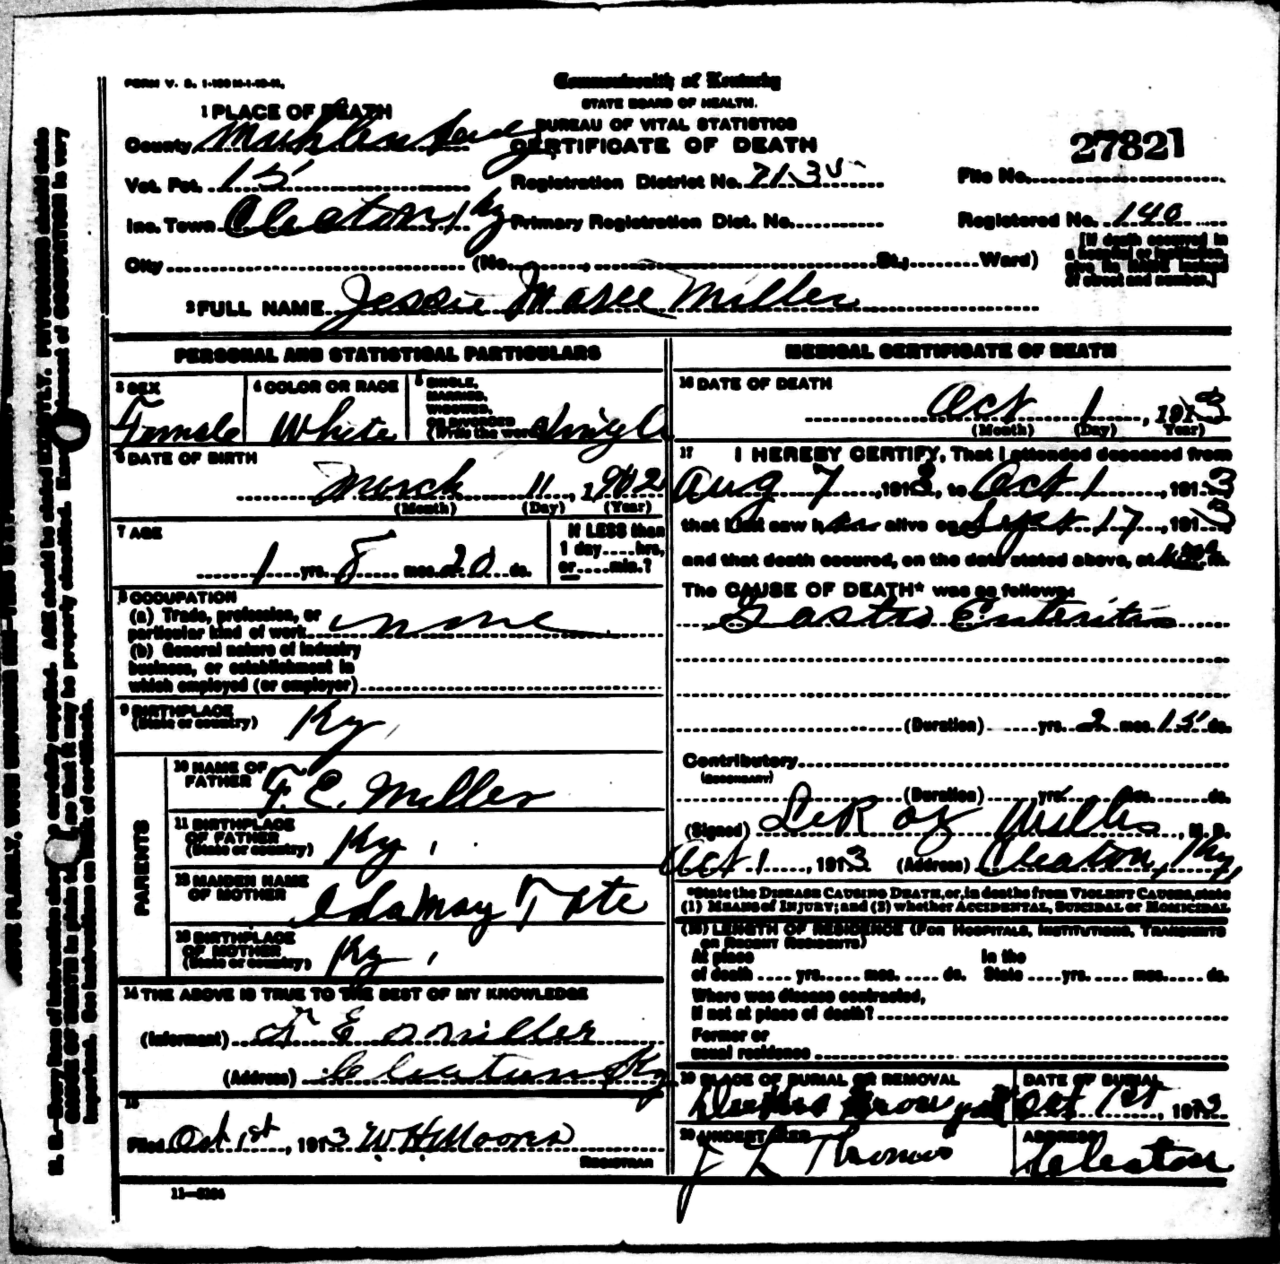 FORM V. S. 1-100 M-1-10-11.
Commonwealth of Kentucky
STATE BOARD OF HEALTH.
BUREAU OF VITAL STATISTICS
CERTIFICATE OF DEATH
27821
1 PLACE OF DEATH
County Muhlenberg
Vot. Pct. 15
Registration District No. 7135
File No.
Inc. Town Cleaton, Ky
Primary Registration Dist. No.
Registered No. 140
City (No. , St.; Ward)
[If death occurred in
a hospital or institution,
give its NAME instead
of street and number.]
2 FULL NAME Jessie Maree Miller
PERSONAL AND STATISTICAL PARTICULARS
3 SEX
Female
4 COLOR OR RACE
White
5 SINGLE,
MARRIED,
WIDOWED,
OR DIVORCED
(Write the word) Single
6 DATE OF BIRTH
March 11, 1912
(Month) (Day) (Year)
7 AGE
1 yrs. 8 mos. 20 ds.
If LESS than
1 day hrs.
or min.?
8 OCCUPATION
(a) Trade, profession, or
particular kind of work none
(b) General nature of industry
business, or establishment in
which employed (or employer)
9 BIRTHPLACE
(State or country) Ky,
PARENTS
10 NAME OF
FATHER F. E. Miller
11 BIRTHPLACE
OF FATHER
(State or country) Ky,
12 MAIDEN NAME
OF MOTHER Ida May Tate
13 BIRTHPLACE
OF MOTHER
(State or country) Ky,
14 THE ABOVE IS TRUE TO THE BEST OF MY KNOWLEDGE
(Informant) F E Miller
(Address) Cleaton Ky
15
Filed Oct 1st, 1913 W. H. Moore
REGISTRAR
11—5184
MEDICAL CERTIFICATE OF DEATH
16 DATE OF DEATH
Oct 1, 1913
(Month) (Day) (Year)
17 I HEREBY CERTIFY, That I attended deceased from
Aug 7, 1913, to Oct 1, 1913
that I last saw her alive on Sept 17, 1913
and that death occured, on the date stated above, at m.
The CAUSE OF DEATH* was as follows:
Gastro Enteritis
(Duration) yrs. 2 mos. 15 ds.
Contributory
(SECONDARY)
(Duration) yrs. mos. ds.
(Signed) LeRoy Willis, M. D.
Oct 1, 1913 (Address) Cleaton, Ky,
*State the DISEASE CAUSING DEATH, or, in deaths from VIOLENT CAUSES, state
(1) MEANS of INJURY; and (2) whether ACCIDENTAL, SUICIDAL or HOMICIDAL
(18) LENGTH OF RESIDENCE (FOR HOSPITALS, INSTITUTIONS, TRANSIENTS
OR RECENT RESIDENTS)
At place
of death yrs. mos. ds.
In the
State yrs. mos. ds.
Where was disease contracted,
if not at place of death?
Former or
usual residence
19 PLACE OF BURIAL OR REMOVAL
DATE OF BURIAL
Oct 1st, 1913
20 UNDERTAKER
J L Thomas
ADDRESS
Cleaton